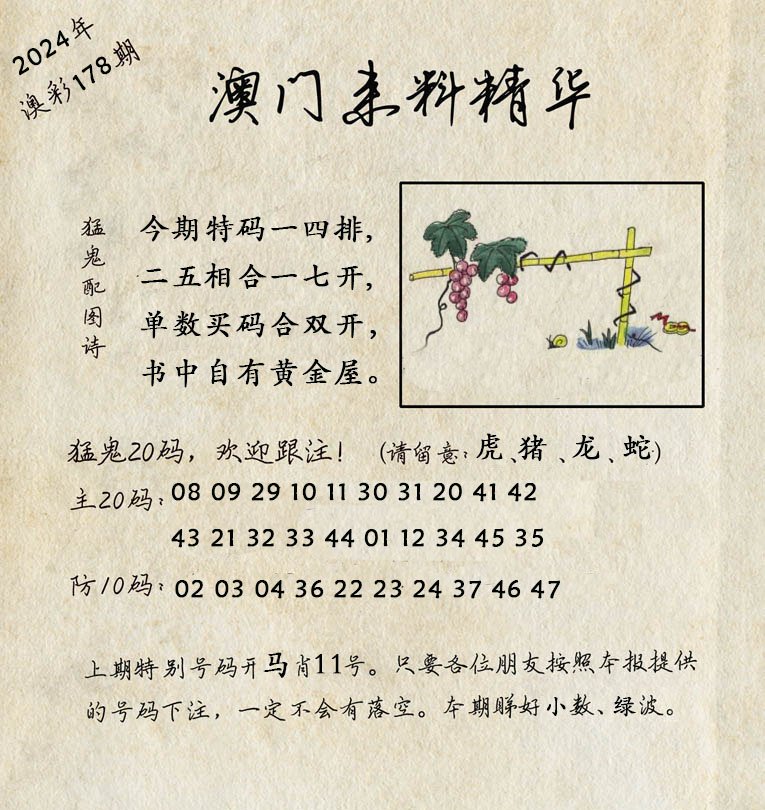 2024年
澳彩178期
澳门来料精华
猛鬼配图诗
今期特码一四排，
二五相合一七开，
单数买码合双开，
书中自有黄金屋。
猛鬼20码，欢迎跟注！（请留意：虎、猪、龙、蛇）
主20码：08 09 29 10 11 30 31 20 41 42
43 21 32 33 44 01 12 34 45 35
防10码：02 03 04 36 22 23 24 37 46 47
上期特别号码开马肖11号。只要各位朋友按照本报提供
的号码下注，一定不会有落空。本期睇好小数、绿波。